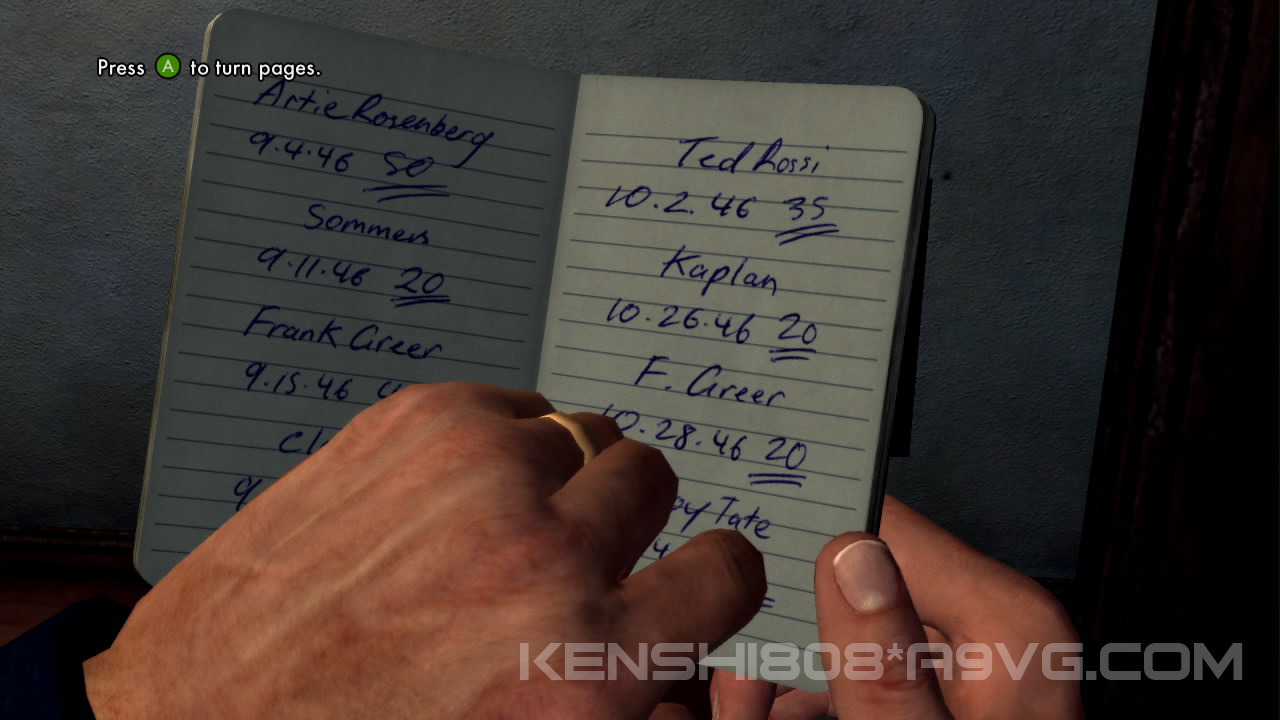 Press A to turn pages.
Artie Rosenberg
9.4.46 50
Sommers
9.11.46 20
Frank Greer
9.15.46
Ted Rossi
10.2.46 35
Kaplan
10.26.46 20
F. Greer
10.28.46 20
Tate
KENSHI808*A9VG.COM